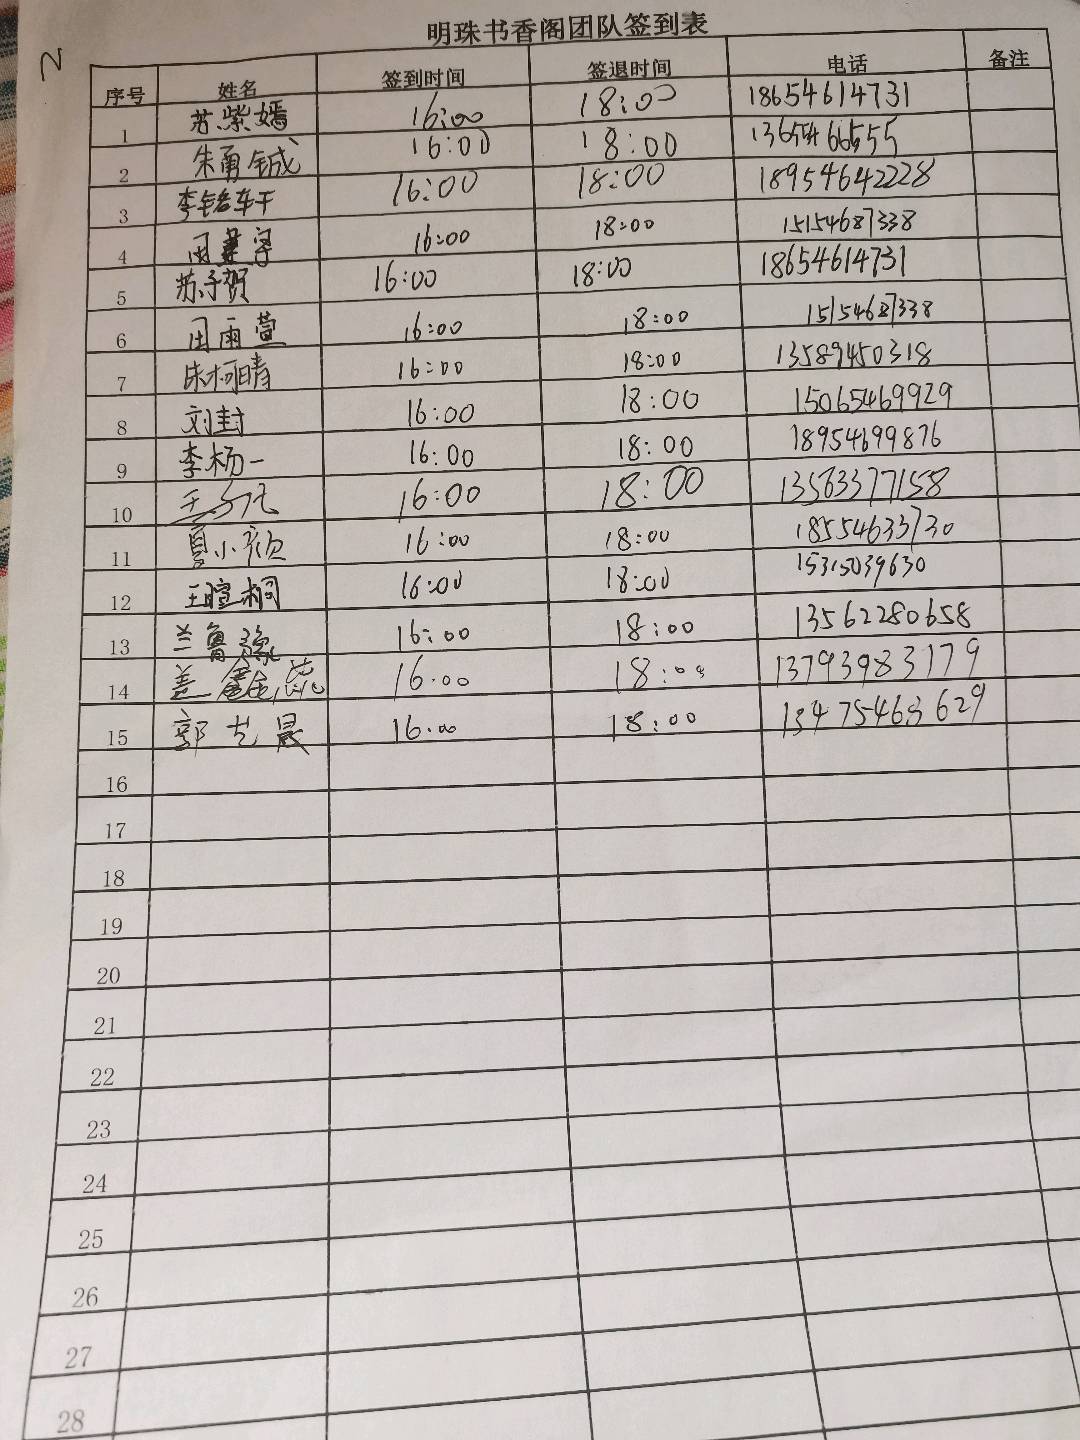 2
明珠书香阁团队签到表
序号 姓名 签到时间 签退时间 电话 备注
1 苏紫嫣 16:00 18:00 18654614731
2 朱勇铖 16:00 18:00 13655466555
3 李铭轩 16:00 18:00 18954642228
4 田宇 16:00 18:00 15154687338
5 苏子贺 16:00 18:00 18654614731
6 田雨萱 16:00 18:00 15154687338
7 朱柯晴 16:00 18:00 13589450318
8 刘封 16:00 18:00 15065469929
9 李杨一 16:00 18:00 18954699876
10 16:00 18:00 13563377158
11 夏小颜 16:00 18:00 18554633730
12 王瑄桐 16:00 18:00 15315039630
13 兰鲁豫 16:00 18:00 13562280658
14 盖鑫蕊 16:00 18:00 13793983179
15 郭艺晨 16:00 18:00 13475463629
16
17
18
19
20
21
22
23
24
25
26
27
28